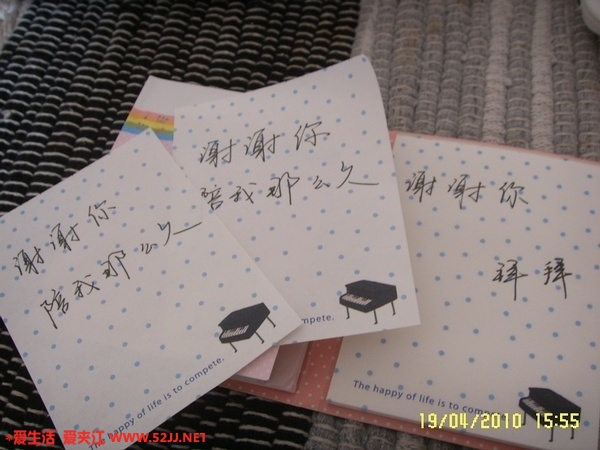 谢谢你
陪我那么久
The happy of life is to compete.
谢谢你
陪我那么久
compete.
谢谢你
拜拜
The happy of life is to compe
19/04/2010 15:55
*爱生活 爱夹江 WWW.52JJ.NET